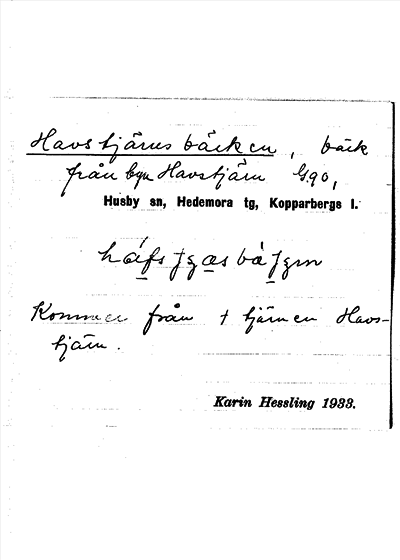 Havstjärnsbäcken, bäck
från byn Havstjärn G90,
Husby sn, Hedemora tg, Kopparbergs l.
Kommer från + tjärnen Havs-
tjärn.
Karin Hessling 1933.